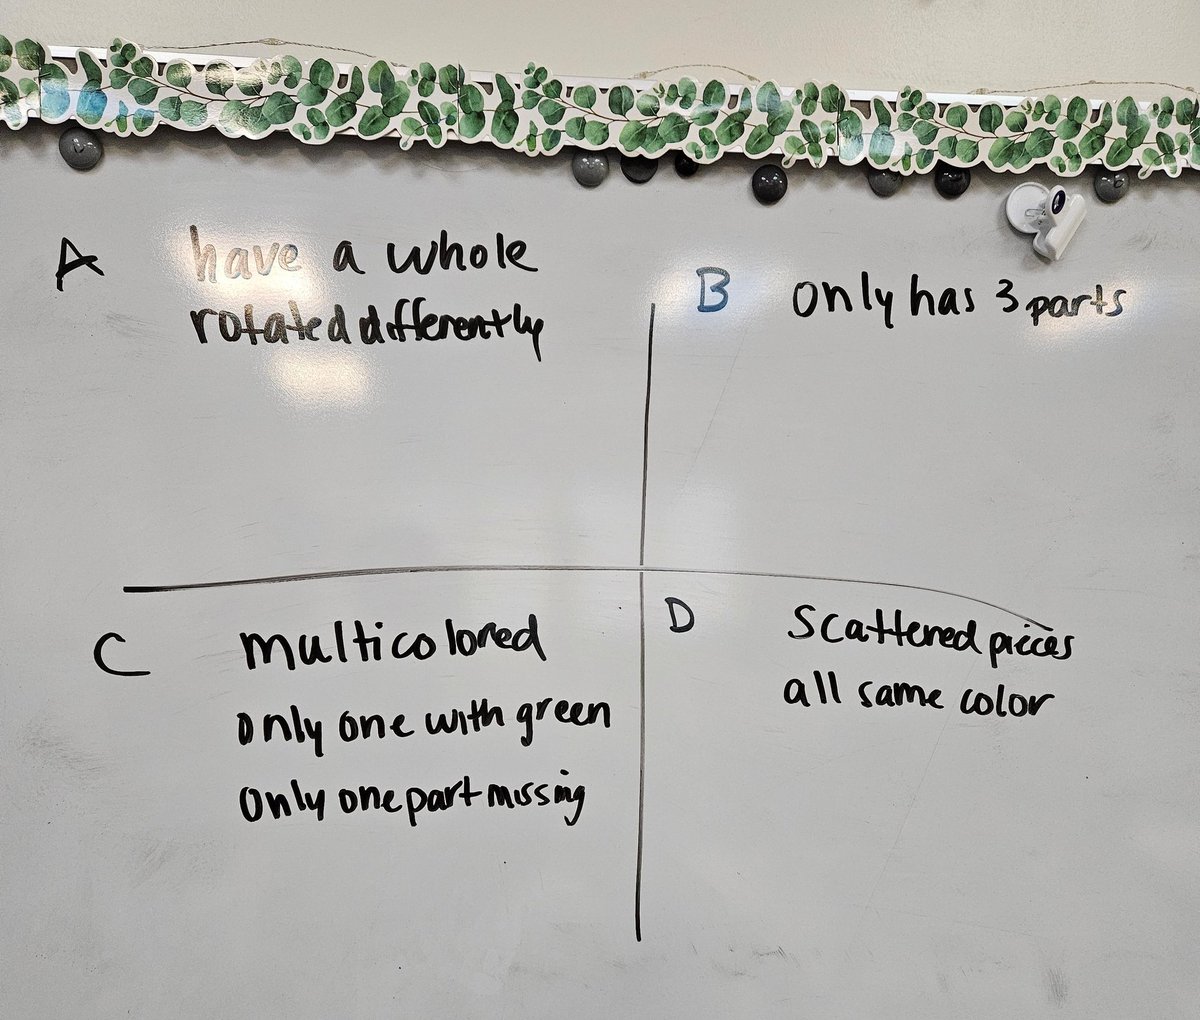 A
have a whole
rotated differently
B
only has 3 parts
C
multicolored
only one with green
only one part missing
D
Scattered pieces
all same color